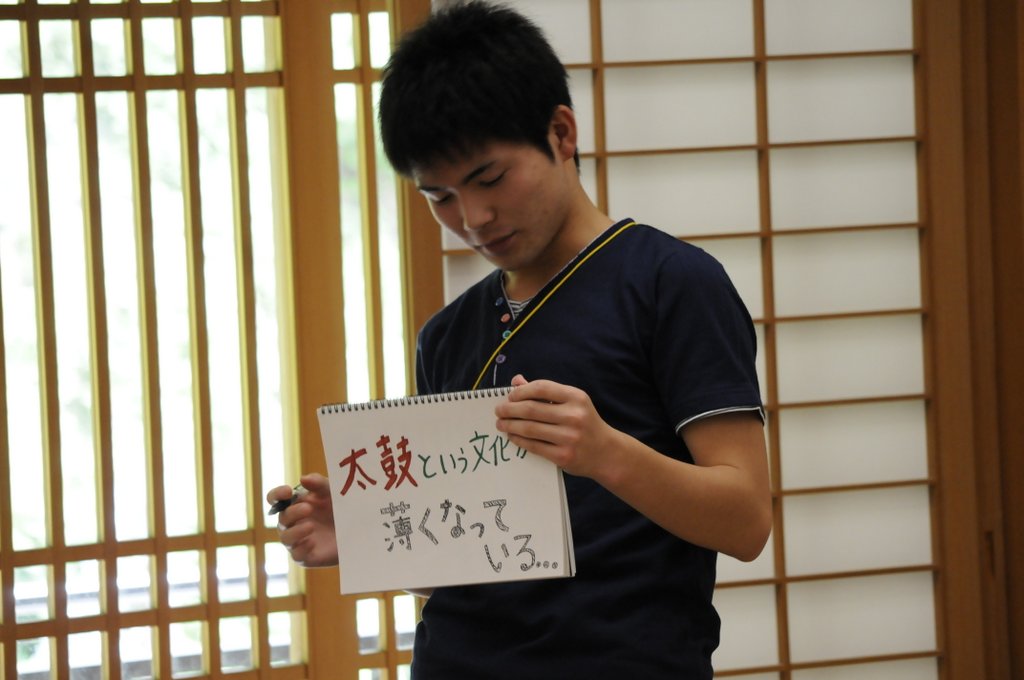 太鼓という文化が
薄くなって
いる...